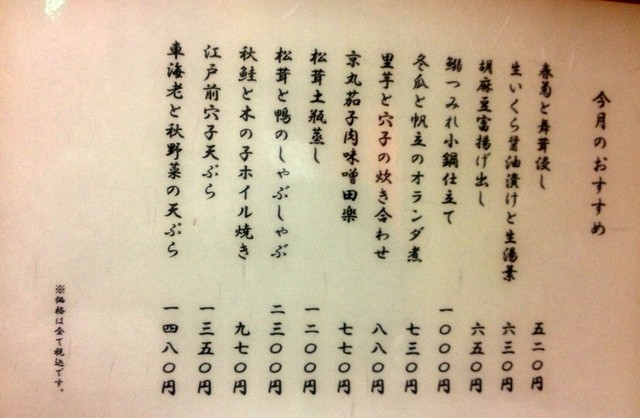 今月のおすすめ
春菊と舞茸浸し 五二〇円
生いくら醤油漬けと生湯葉 六三〇円
胡麻豆富揚げ出し 六五〇円
鰯つみれ小鍋仕立て 一〇〇〇円
冬瓜と帆立のオランダ煮 七三〇円
里芋と穴子の炊き合わせ 八八〇円
京丸茄子肉味噌田楽 七七〇円
松茸土瓶蒸し 一二〇〇円
松茸と鴨のしゃぶしゃぶ 二三〇〇円
秋鮭と木の子ホイル焼き 九七〇円
江戸前穴子天ぷら 一三五〇円
車海老と秋野菜の天ぷら 一四八〇円
※価格は全て税込です。